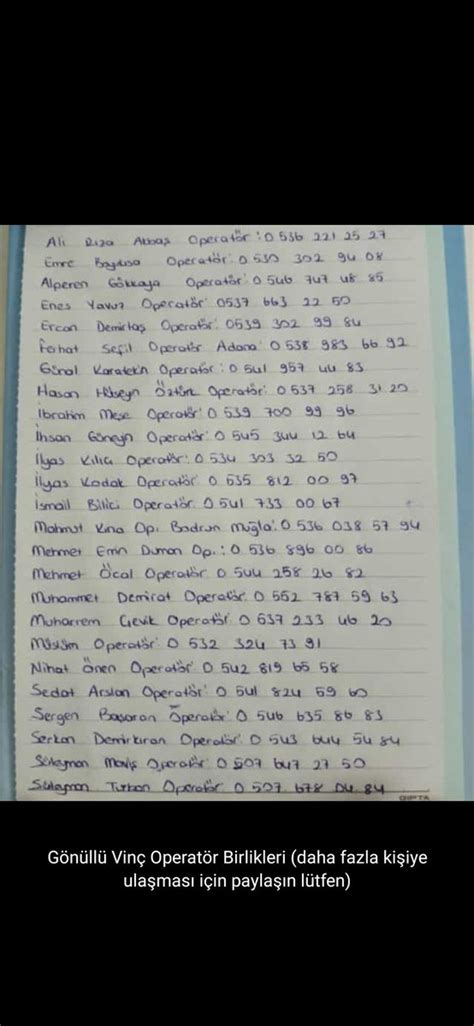 Ali Rıza Akbaş Operatör : 0 536 221 25 27
Emre Operatör : 0 530 302 94 08
Alperen Gökkaya Operatör : 0 546 747 48 85
Enes Yavuz Operatör : 0537 663 22 50
Ercan Demirtaş Operatör : 0539 302 99 84
Ferhat Sefil Operatör Adana : 0 538 983 66 92
Günal Karatekin Operatör : 0 541 957 44 83
Hasan Hüseyn Öztürk Operatör : 0 537 258 31 20
İbrahim Meşe Operatör : 0 539 700 99 96
İhsan Güneyn Operatör : 0 545 344 12 64
İlyas Kılıcı Operatör : 0 534 303 32 50
İlyas Kodak Operatör : 0 535 812 00 97
İsmail Bilici Operatör : 0 541 733 00 67
Mahmut Kına Op. Bodrum Muğla : 0 536 038 57 94
Mehmet Emin Duman Op. : 0 536 896 00 86
Mehmet Öcal Operatör : 0 544 258 26 82
Muhammet Demirat Operatör : 0 552 787 59 63
Muharrem Çevik Operatör : 0 537 233 46 20
Müslüm Operatör : 0 532 324 73 91
Nihat Önen Operatör : 0 542 819 65 58
Sedat Arslan Operatör : 0 541 824 59 60
Sergen Başaran Operatör : 0 546 635 86 83
Serkan Demirkıran Operatör : 0 543 644 54 84
Süleyman Operatör : 0 507 647 27 50
Süleyman Turhan Operatör : 0 507 678 04 84
GIPTA
Gönüllü Vinç Operatör Birlikleri (daha fazla kişiye
ulaşması için paylaşın lütfen)